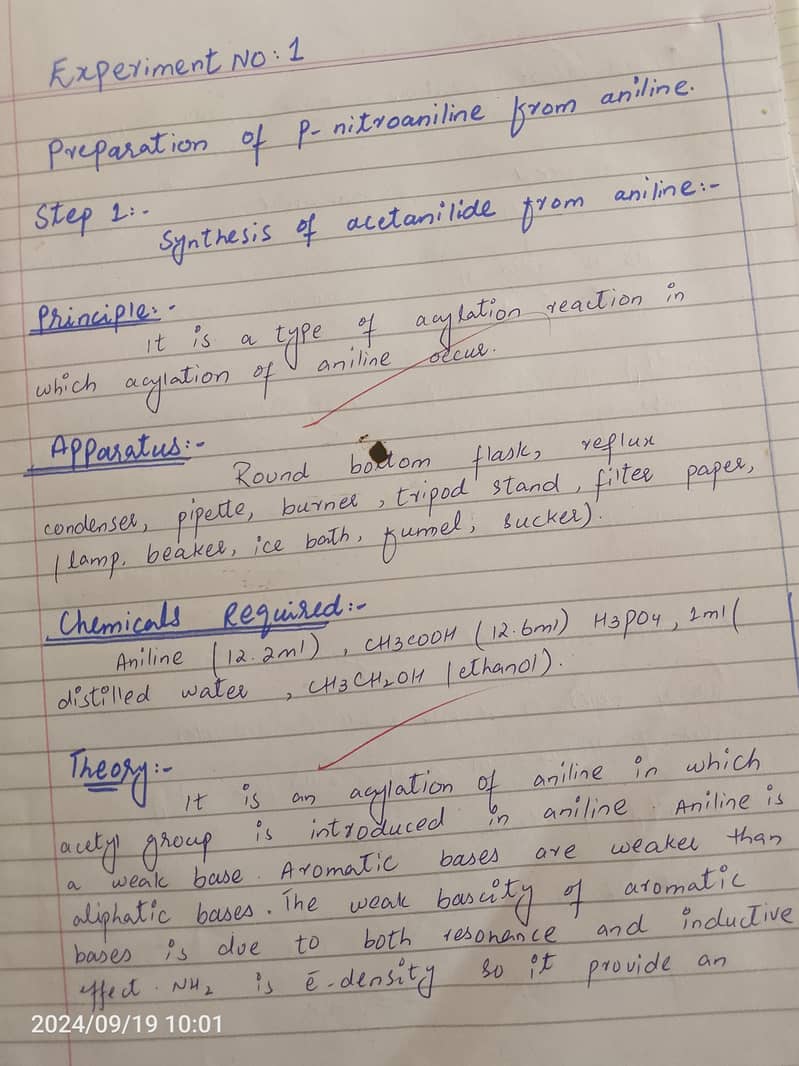 Experiment No: 1
Preparation of P-nitroaniline from aniline.
Step 1:-
Synthesis of acetanilide from aniline:-
Principle:-
It is a type of acylation reaction in
which acylation of aniline occur.
Apparatus:-
Round bottom flask, reflux
condenser, pipette, burner, tripod stand, filter paper,
(lamp, beaker, ice bath, funnel, sucker).
Chemicals Required:-
Aniline (12.2ml), CH3COOH (12.6ml) H3PO4, 1ml(
distilled water, CH3CH2OH (ethanol).
Theory:-
It is an acylation of aniline in which
acetyl group is introduced in aniline. Aniline is
a weak base. Aromatic bases are weaker than
aliphatic bases. The weak bascity of aromatic
bases is due to both resonance and inductive
effect. NH2 is ē-density so it provide an
2024/09/19 10:01